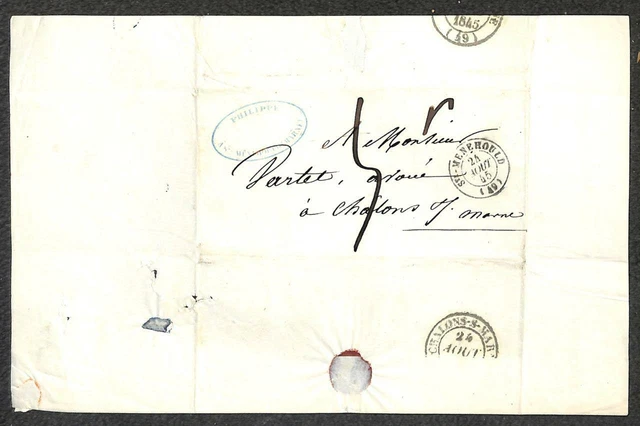 1845
(49)
PHILIPPE
A Monsieur
Partet, avoué
à Châlons s/ marne
STE-MENEHOULD
24
AOUT
45
(49)
CHALONS-S-MAR
24
AOUT